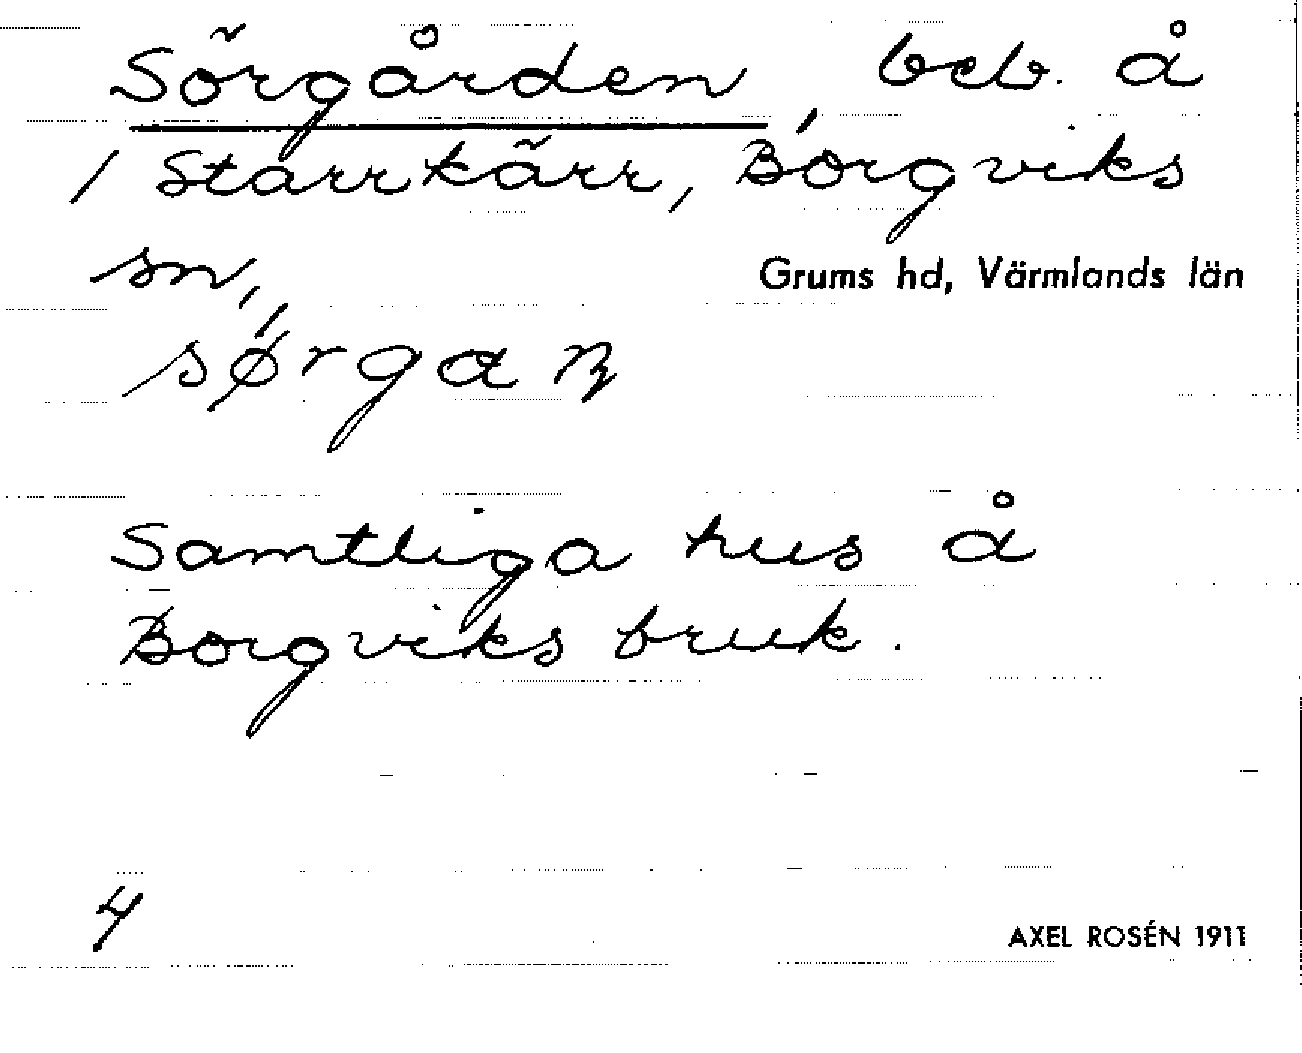 Sörgården, beb. å
/ Starrkärr, Borgviks
sn,
Grums hd, Värmlands län
sørgan
Samtliga hus å
Borgviks bruk.
4
AXEL ROSÉN 1911